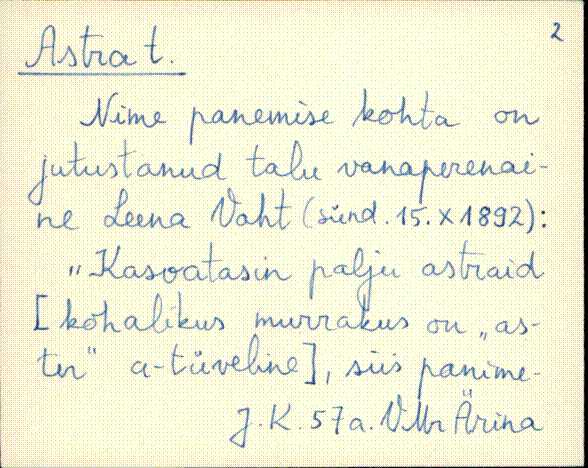 2
Astra t.
Nime panemise kohta on
jutustanud talu vanaperenai-
ne Leena Vaht (sünd. 15. X 1892):
"Kasvatasin palju astraid
[kohalikus murrakus on „as-
ter" a-tüveline], siis panime-
J. K. 57a. VMr Ärina